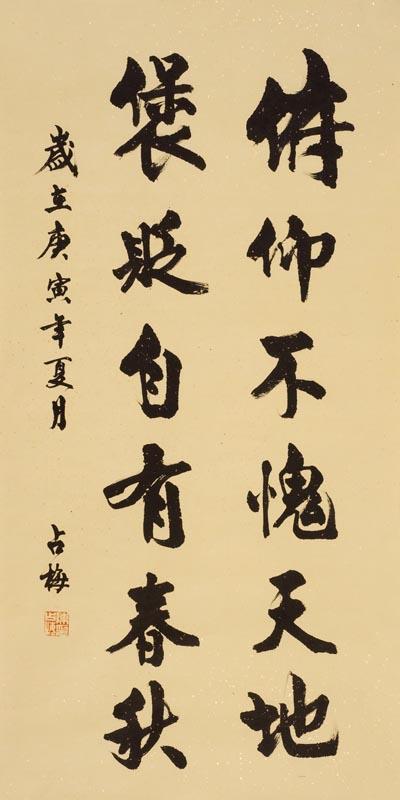 俯仰不愧天地
褒贬自有春秋
歲在庚寅年夏月
占梅